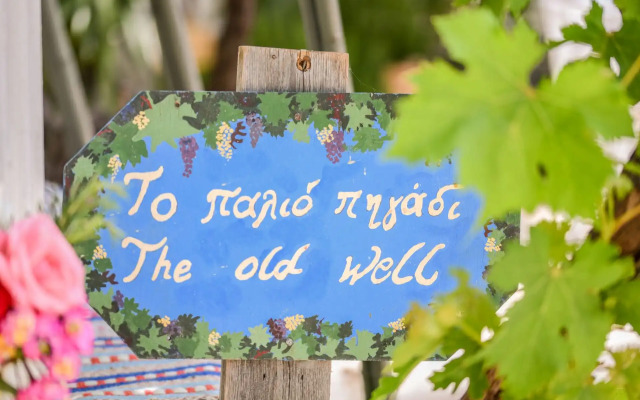 Το παλιό πηγάδι
The old well